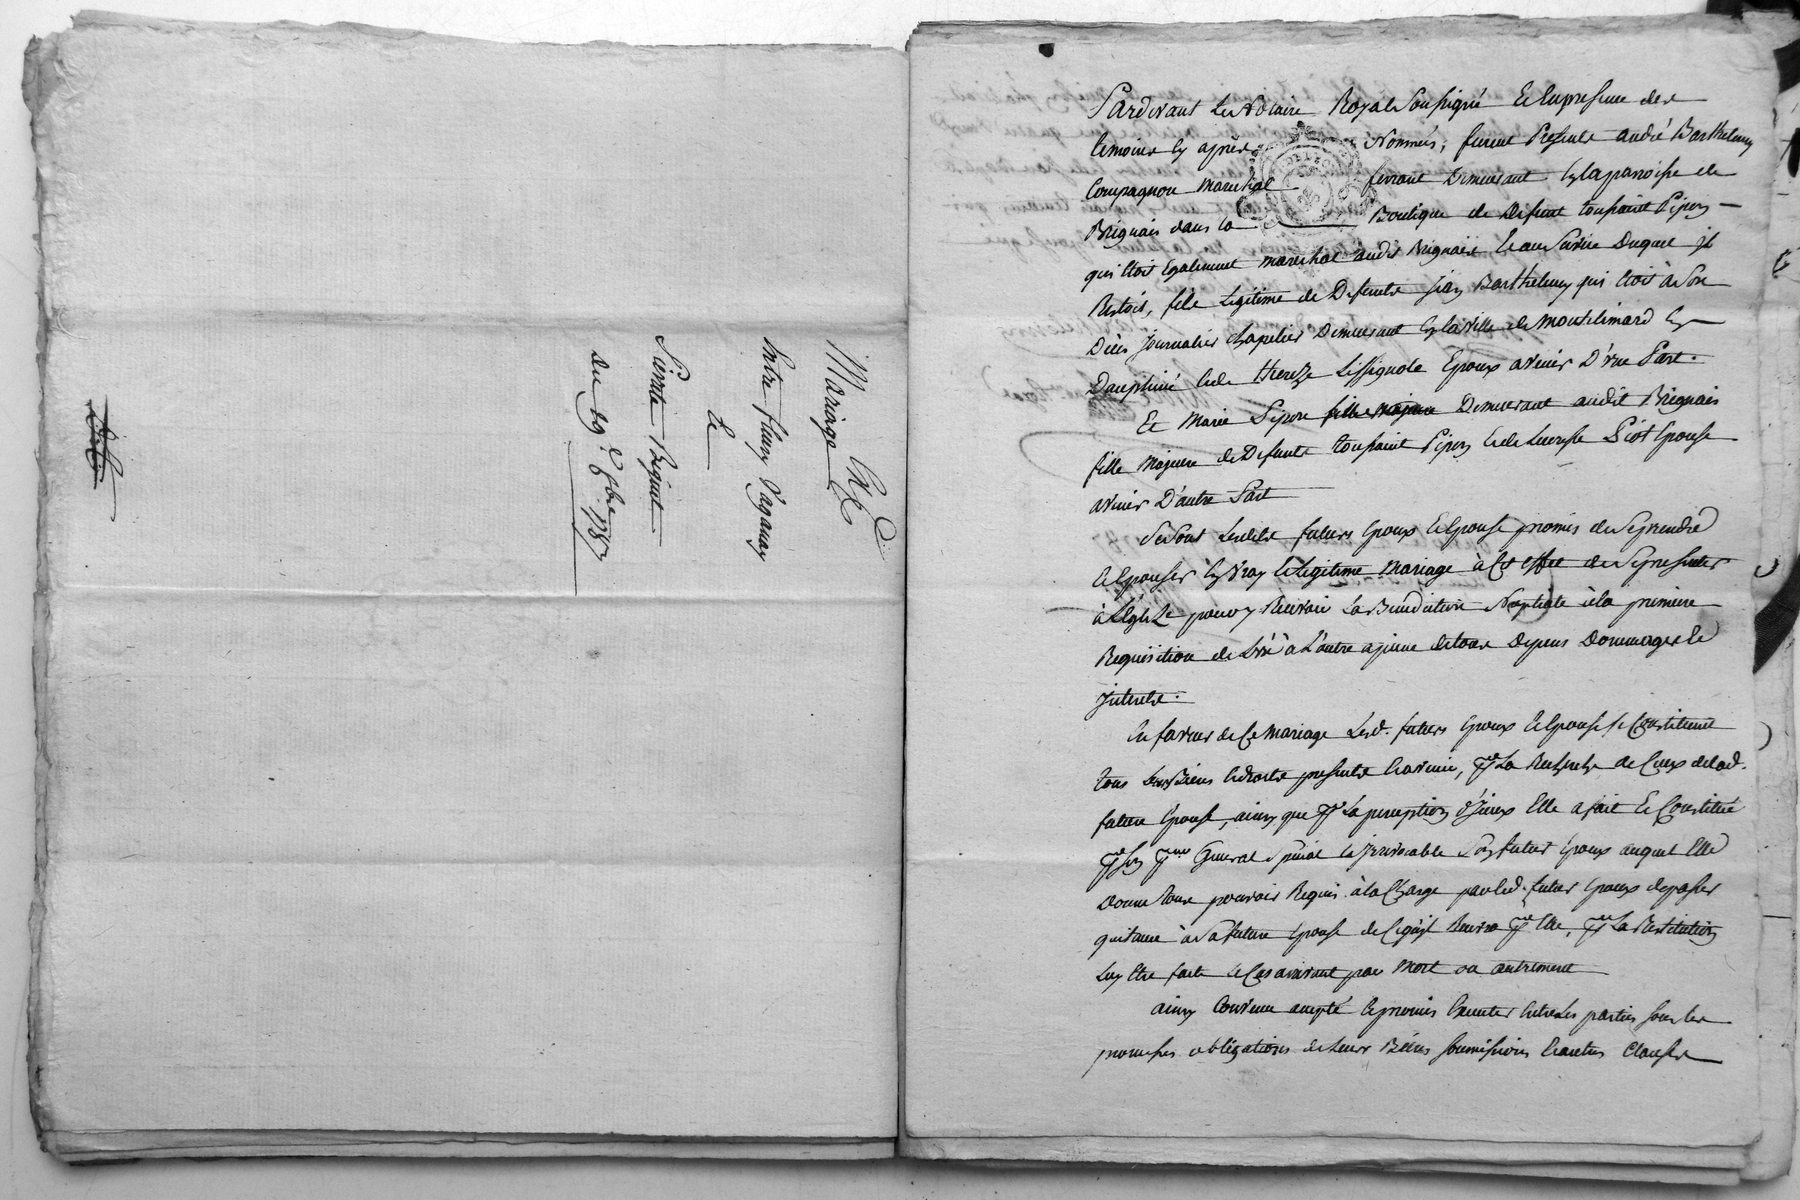 Mariage
Entre fleury Dagausy
Et
Pierrette Bizint
du 19.e 9bre 1787
Pardevant Le Notaire Royal Soussigné Et En presence des
temoins Cy après Nommés, furent Presents andré Barthelemy
Compagnon marechal ferrant Demeurant En la paroisse de
Brignais dans la Boutique de Defunt toussaint Pipon
qui Etoit Egalement marechal audit Brignais Et au Service Duquel il
Restoit, fils Legitime de Defunts Jean Barthelemy qui Etoit à Son
Décès Journalier Chapelier Demeurant En la ville de Montelimard En
Dauphiné Et de Thereze Lissignole Epoux avenir D'une Part.
Et Marie Pipon Demeurant audit Brignais
fille Majeure de Defunts toussaint Pipon Et de Lucresse Piot Epouse
avenir D'autre Part
Se Sont Lesdits futurs Epoux Et Epouse promis de Se prendre
Et Epouser En vray Et Legitime Mariage à Cet effet de Se presenter
à L'Eglize pour y Recevoir La Benediction Nuptiale à la premiere
Requisition de L'un à L'autre a peine de tous Depens Dommages Et
Interets.
En faveur de Ce Mariage Lesd. futurs Epoux Et Epouse Se Constituent
tous Leurs Biens Et droits presents Et avenir, pr La Recherche de Ceux de lad.
future Epouse, ainsy que pr La perception d'Iceux Elle a fait Et Constitué
pr Son pr.eur General Special Et Irrevocable Son futur Epoux auquel Elle
Donne tous pouvoirs Requis à la Charge par led. futur Epoux de passer
quittance à Sa future Epouse de Ce qu'il Recevra pr Elle, pr La Restitution
Luy Etre faite Le Cas arrivant par Mort ou autrement
ainsy Convenu accepté Et promis Executer Entre Les parties sous les
promesses obligations de Leurs Biens soumissions Et autres Clauses